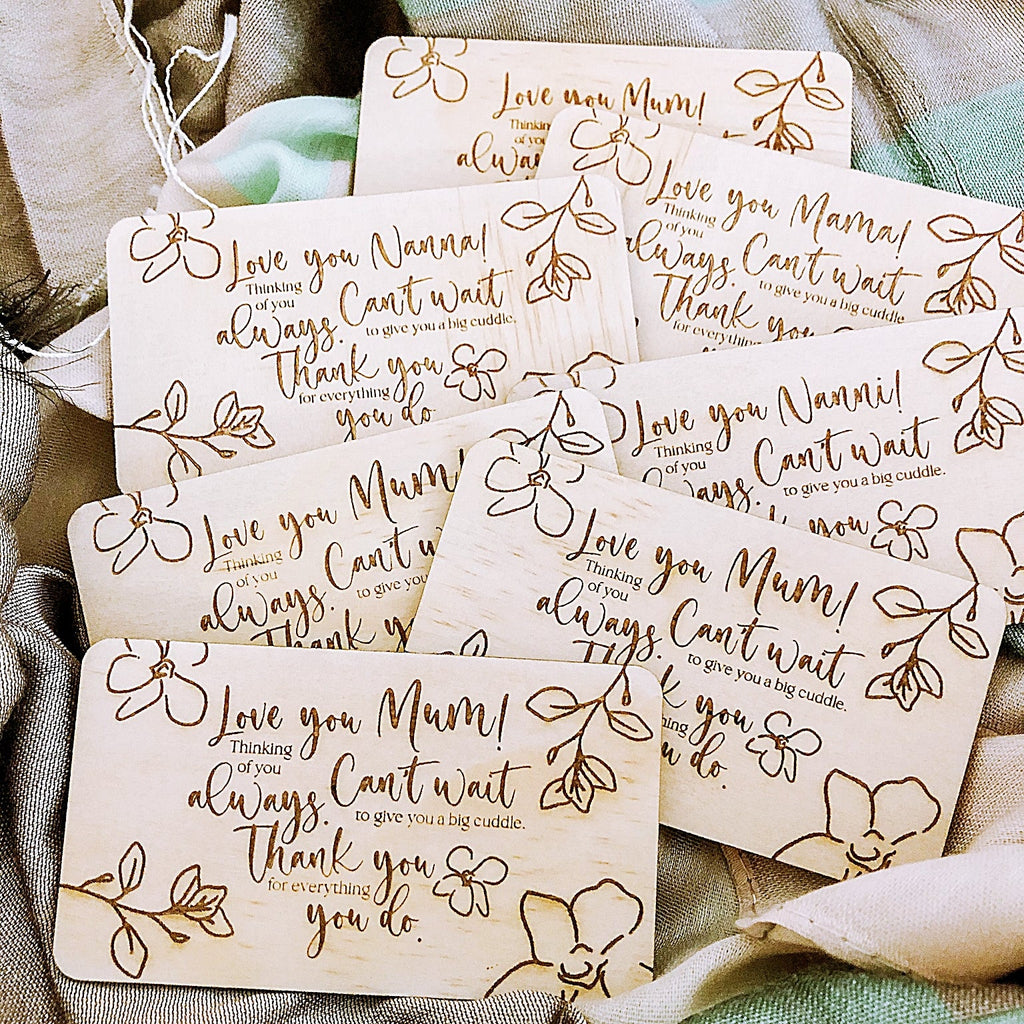 Love you Mum!
Thinking
of you
Love you Mama!
Thinking
of you
always. Can't wait
to give you a big cuddle.
Thank you
for everything
Love you Nanna!
Thinking
of you
always. Can't wait
to give you a big cuddle.
Thank you
for everything
you do
Love you Nanni!
Thinking
of you
Can't wait
to give you a big cuddle.
you
Love you Mum!
Thinking
of you
always. Can't
to give you
Thank
Love you Mum!
Thinking
of you
always. Can't wait
to give you a big cuddle.
you
do.
Love you Mum!
Thinking
of you
always. Can't wait
to give you a big cuddle.
Thank you
for everything
you do.